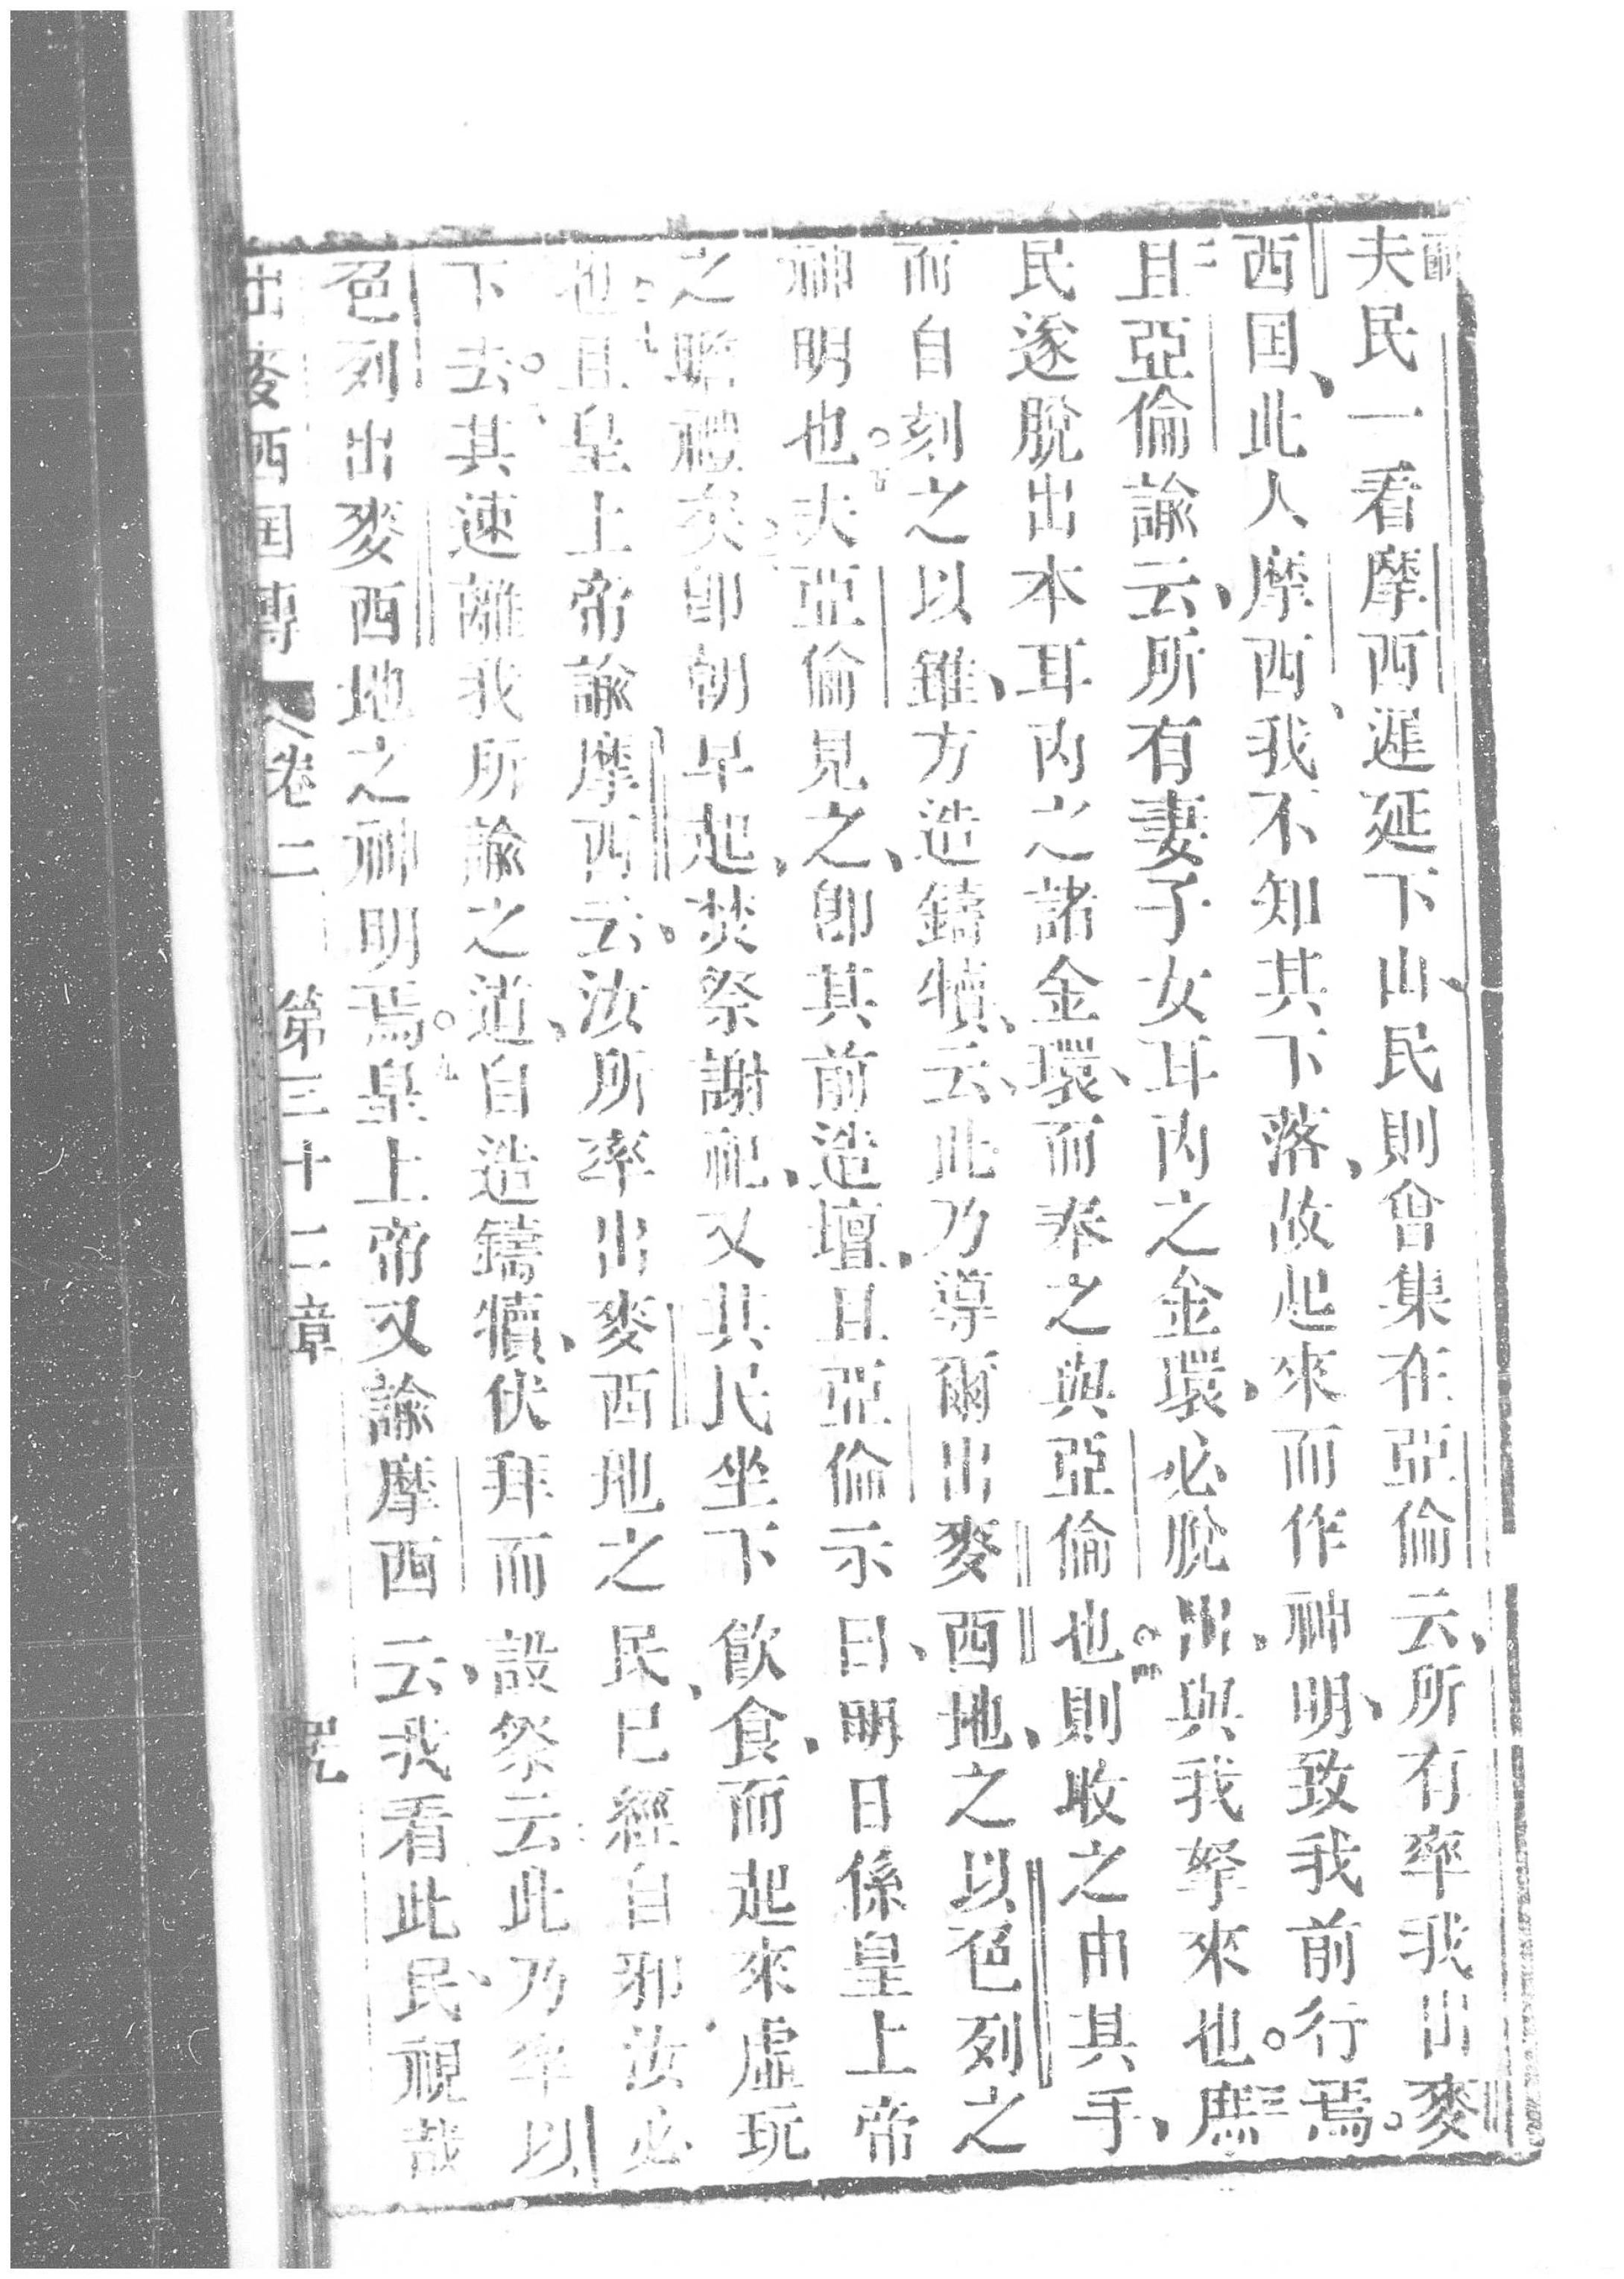 夫民一看摩西遲延下山、民則會集在亞倫云、所有率我出麥
西国、此人摩西、我不知其下落、故起來而作神明、致我前行焉。
二且亞倫諭云、所有妻子女耳內之金環、必脫出、與我拏來也。三庶
民遂脫出本耳內之諸金環、而奉之與亞倫也。四則收之由其手、
而自刻之以錐、方造鑄犢、云、此乃導爾出麥西地、之以色列之
神明也。五夫亞倫見之、即其前造壇、且亞倫示曰、明日係皇上帝
之瞻禮矣、即朝早起、焚祭謝祀、又其民坐下飲食、而起來虛玩
也。七且皇上帝諭摩西云、汝所率出麥西地之民、已經自邪、汝必
下去。其速離我所諭之道、自造鑄犢、伏拜而設祭云、此乃率以
色列出麥西地之神明焉。九皇上帝又諭摩西云、我看此民、視哉
出麥西国傳 卷二 第三十二章